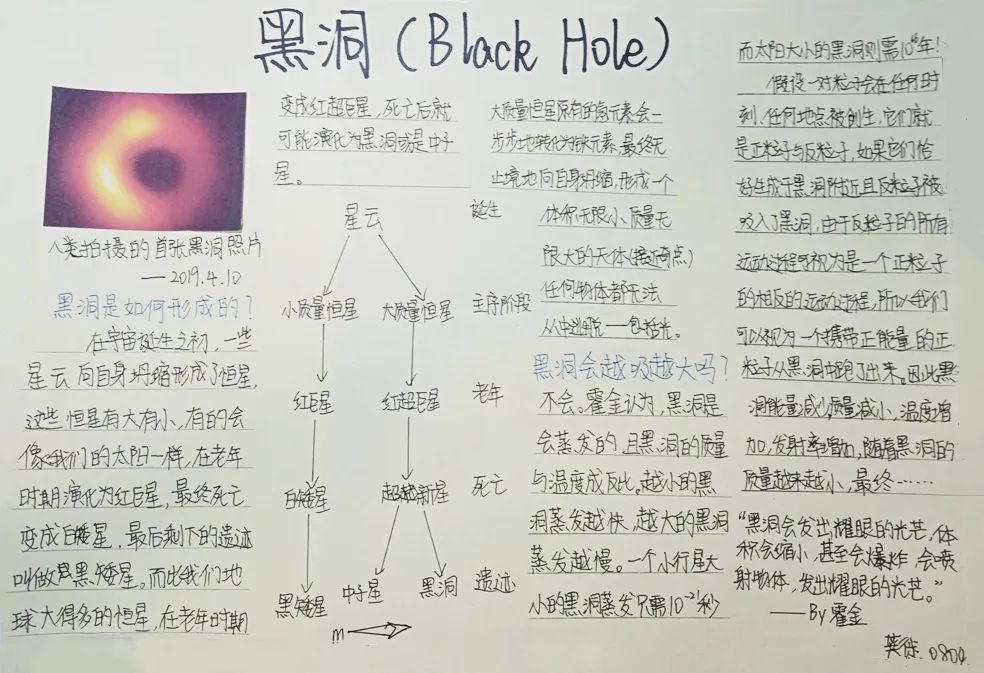 黑洞（Black Hole）
人类拍摄的首张黑洞照片
——2019.4.10
黑洞是如何形成的？
在宇宙诞生之初，一些
星云向自身坍缩形成了恒星，
这些恒星有大有小，有的会
像我们的太阳一样，在老年
时期演化为红巨星，最终死亡
变成白矮星，最后剩下的遗迹
叫做黑矮星。而比我们地
球大得多的恒星，在老年时期
变成红超巨星，死亡后就
可能演化为黑洞或是中子
星。
星云
诞生
小质量恒星
大质量恒星
主序阶段
红巨星
红超巨星
老年
白矮星
超新星
死亡
黑矮星
中子星
黑洞
遗迹
m
大质量恒星原有的氢元素会一
步步地转化为铁元素，最终无
止境地向自身坍缩，形成一个
体积无限小、质量无
限大的天体（接近奇点）
任何物体都无法
从中逃脱——包括光。
黑洞会越吸越大吗？
不会。霍金认为，黑洞是
会蒸发的，且黑洞的质量
与温度成反比。越小的黑
洞蒸发越快，越大的黑洞
蒸发越慢。一个小行星大
小的黑洞蒸发只需10⁻²¹秒
而太阳大小的黑洞则需10⁶⁶年！
假设一对粒子会在任何时
刻、任何地点被创生，它们就
是正粒子与反粒子，如果它们恰
好生成于黑洞附近且反粒子被
吸入了黑洞，由于反粒子的所有
运动过程可视为是一个正粒子
的相反的运动过程，所以我们
可以视为一个携带正能量的正
粒子从黑洞中跑了出来。因此黑
洞能量减少，质量减小，温度增
加，发射率增加，随着黑洞的
质量越来越小，最终……
“黑洞会发出耀眼的光芒，体
积会缩小，甚至会爆炸，会喷
射物体，发出耀眼的光芒。”
——By霍金
0804